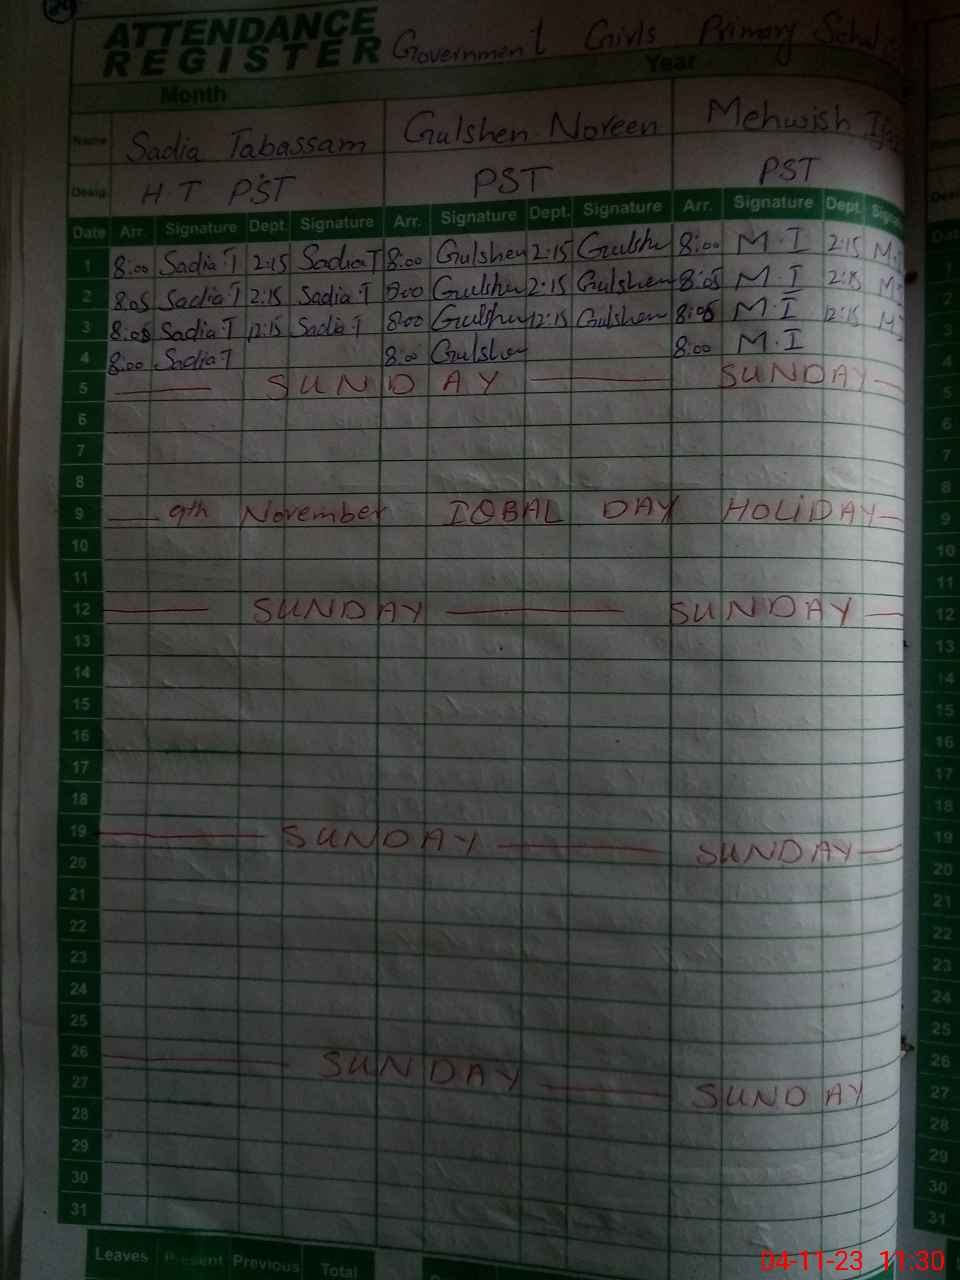 ATTENDANCE
REGISTER Government Girls Primary
Month Year
Name Sadia Tabassam Gulshen Noreen Mehwish
Desig H T PST PST PST
Date Arr. Signature Dept. Signature Arr. Signature Dept. Signature Arr. Signature Dept.
1 8:00 Sadia T 2:15 Sadia T 8:00 Gulshen 2:15 8:00 M.I 2:15
2 8:05 Sadia T 2:15 Sadia T 8:00 2:15 Gulshen 8:05 M.I 2:15
3 8:05 Sadia T 12:15 Sadia T 8:00 12:15 Gulshen 8:05 M.I 12:15
4 8:00 Sadia T 8:00 Gulshen 8:00 M.I
5 SUNDAY SUNDAY
6
7
8
9 9th November IQBAL DAY HOLIDAY
10
11
12 SUNDAY SUNDAY
13
14
15
16
17
18
19 SUNDAY SUNDAY
20
21
22
23
24
25
26 SUNDAY
27 SUNDAY
28
29
30
31
Leaves Present Previous Total
04-11-23 11:30